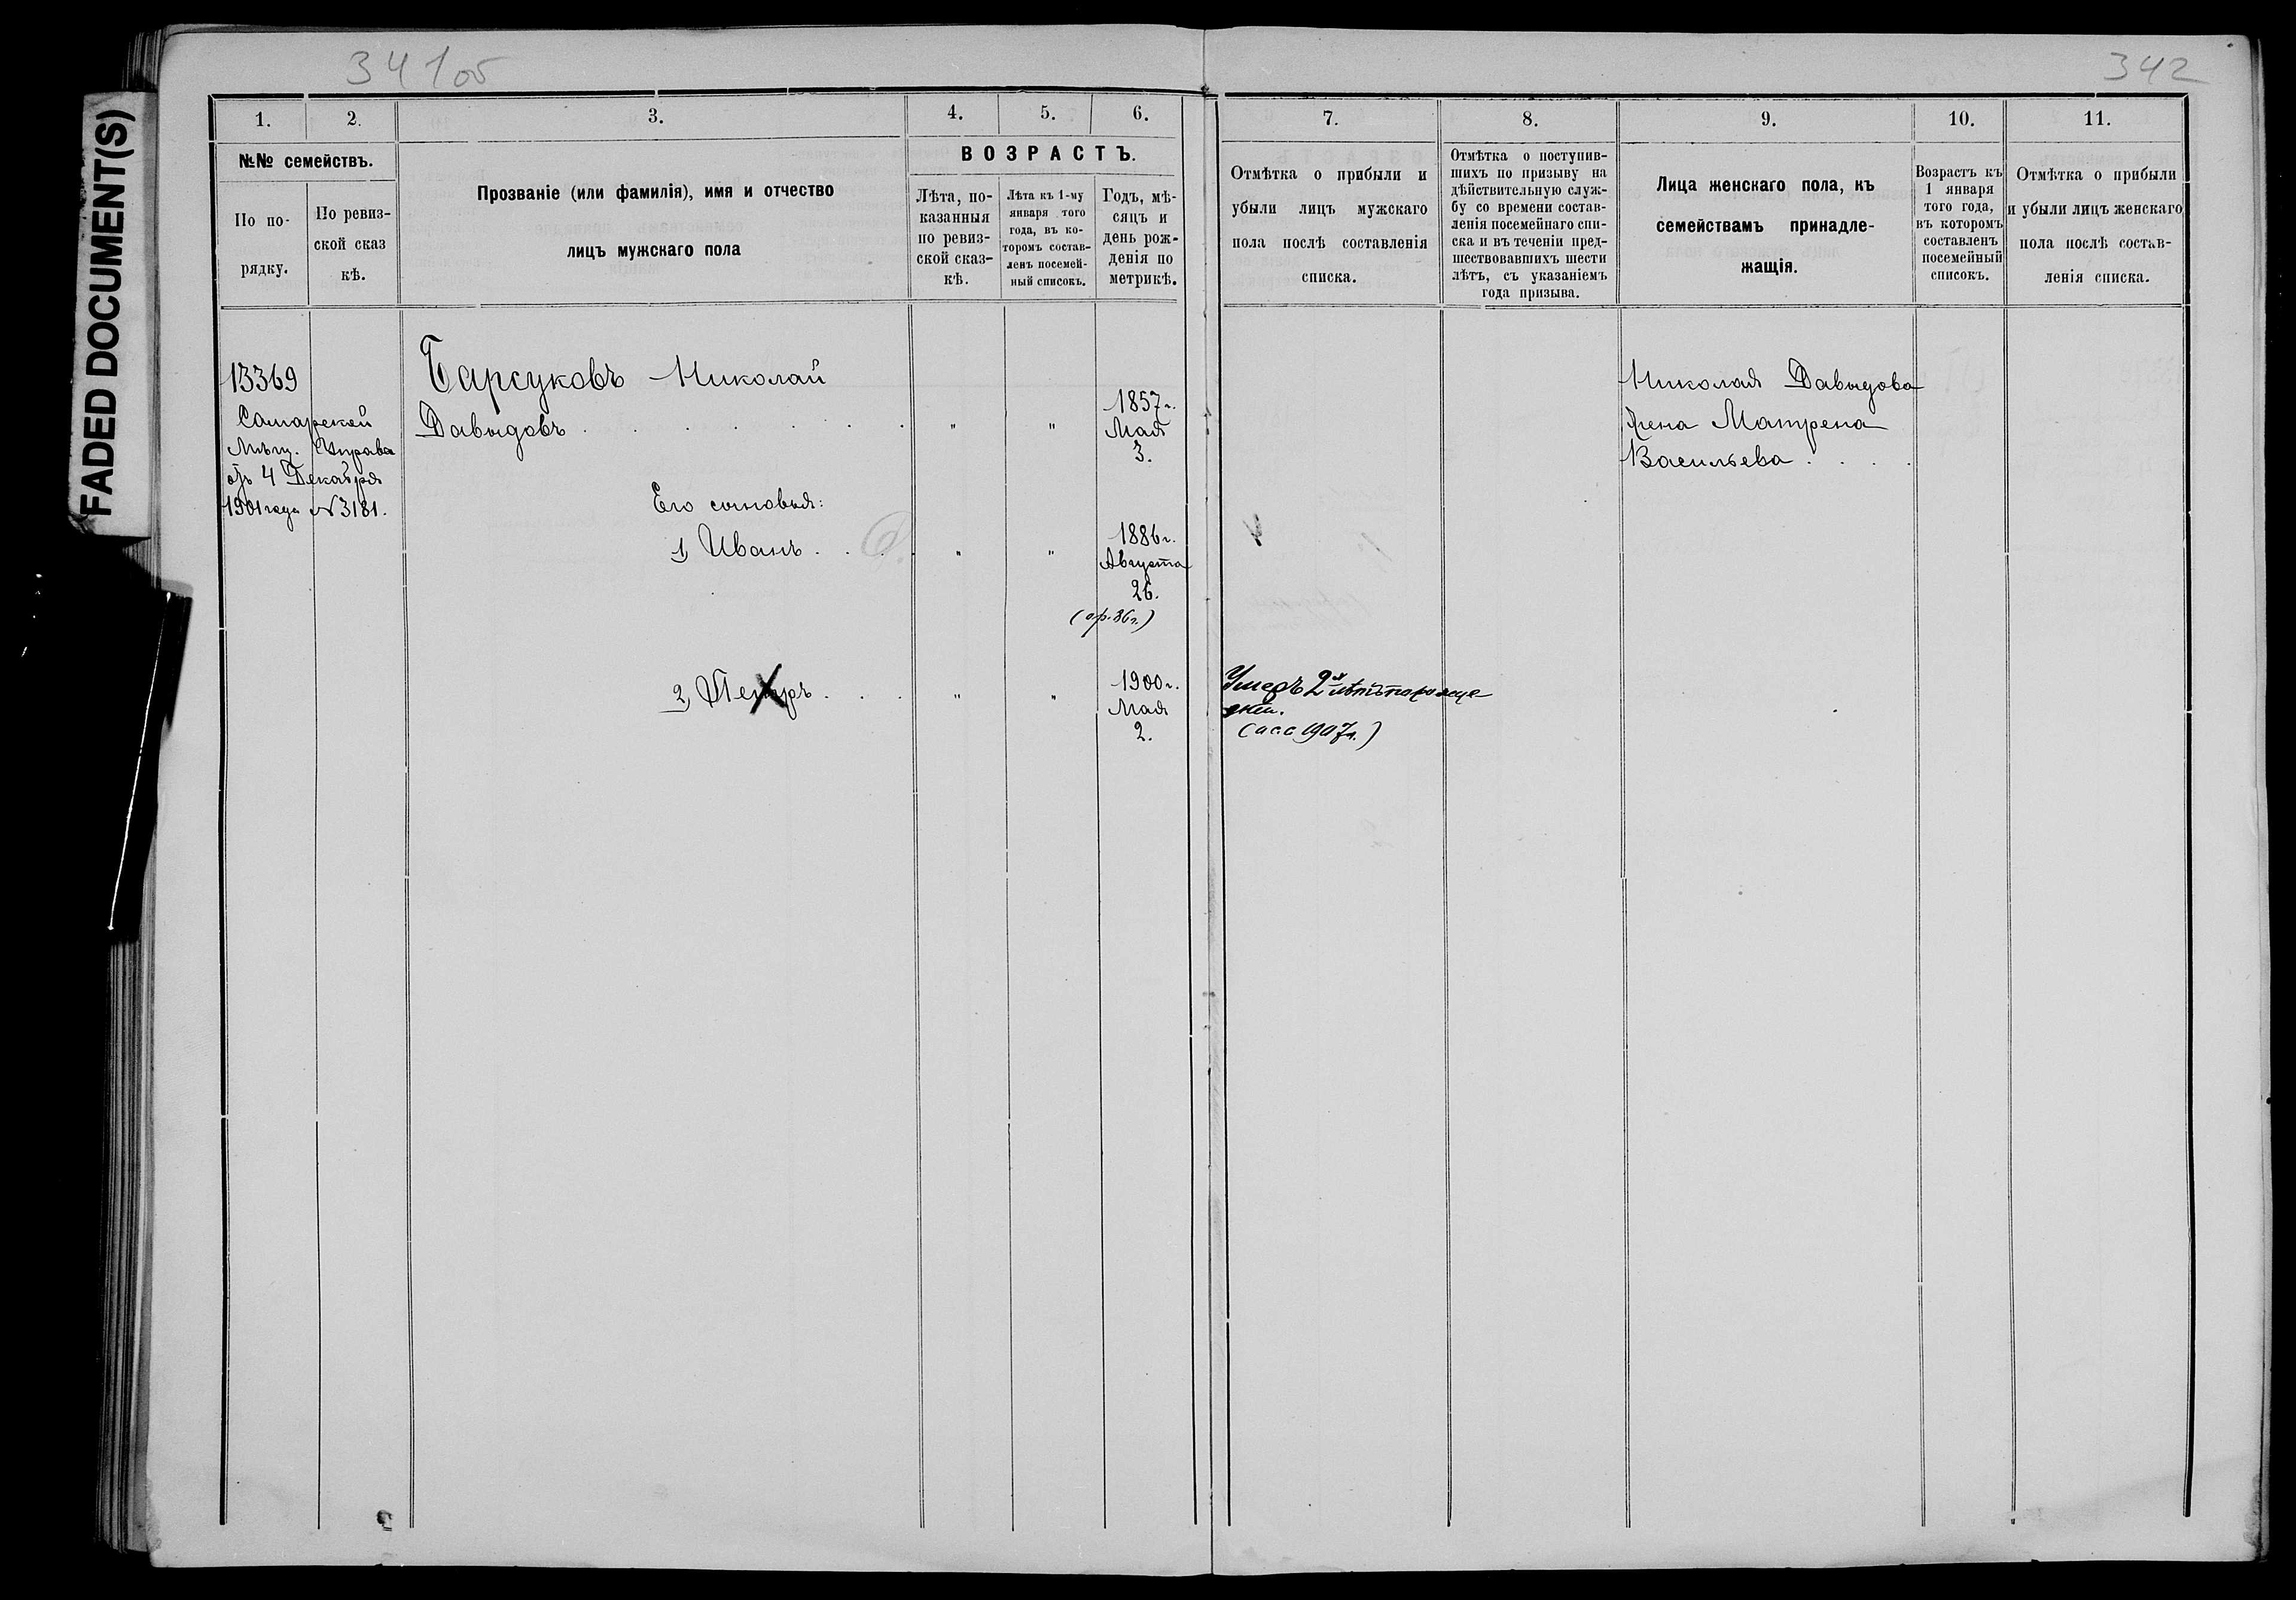 FADED DOCUMENT(S)
341об
342
1.
2.
3.
4.
5.
6.
№№ семействъ.
По по-
рядку.
По ревиз-
ской сказ
кѣ.
Прозваніе (или фамилія), имя и отчество
лицъ мужскаго пола
ВОЗРАСТЪ.
Лѣта, по-
казанныя
по ревиз-
ской сказ-
кѣ.
Лѣта къ 1-му
января того
года, въ ко-
торомъ состав-
ленъ посемей-
ный списокъ.
Годъ, мѣ-
сяцъ и
день рож-
денія по
метрикѣ.
7.
8.
9.
10.
11.
Отмѣтка о прибыли и
убыли лицъ мужскаго
пола послѣ составленія
списка.
Отмѣтка о поступив-
шихъ по призыву на
дѣйствительную служ-
бу со времени состав-
ленія посемейнаго спи-
ска и въ теченіи пред-
шествовавшихъ шести
лѣтъ, съ указаніемъ
года призыва.
Лица женскаго пола, къ
семействамъ принадле-
жащія.
Возрастъ къ
1 января
того года,
въ которомъ
составленъ
посемейный
списокъ.
Отмѣтка о прибыли
и убыли лицъ женскаго
пола послѣ состав-
ленія списка.
13369
Самарской
Мѣщ. Управы
отъ 4 Декабря
1901 года №3181.
Барсуковъ Николай
Давыдовъ . . . . . . .
" "
1857г.
Мая
3.
Его сыновья:
1, Иванъ . . .
" "
1886г.
Августа
26.
(ор. 86г.)
2, Петръ . . .
" "
1900г.
Мая
2.
Умеръ 2
(асс 1907г.)
Николая Давыдова
жена Матрена
Васильева . . . .